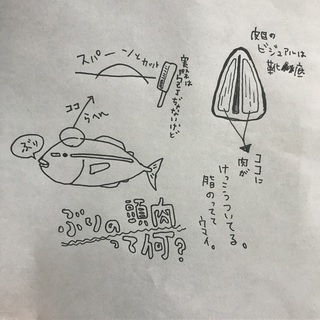 スパーンとカット
実際は
包丁じゃないけど
ココ
らへん
ぶり
ぶりの頭肉
って何?
皮目の
ビジュアルは
靴底
ココに
肉が
けっこうついてる。
脂のってて
ウマイ。